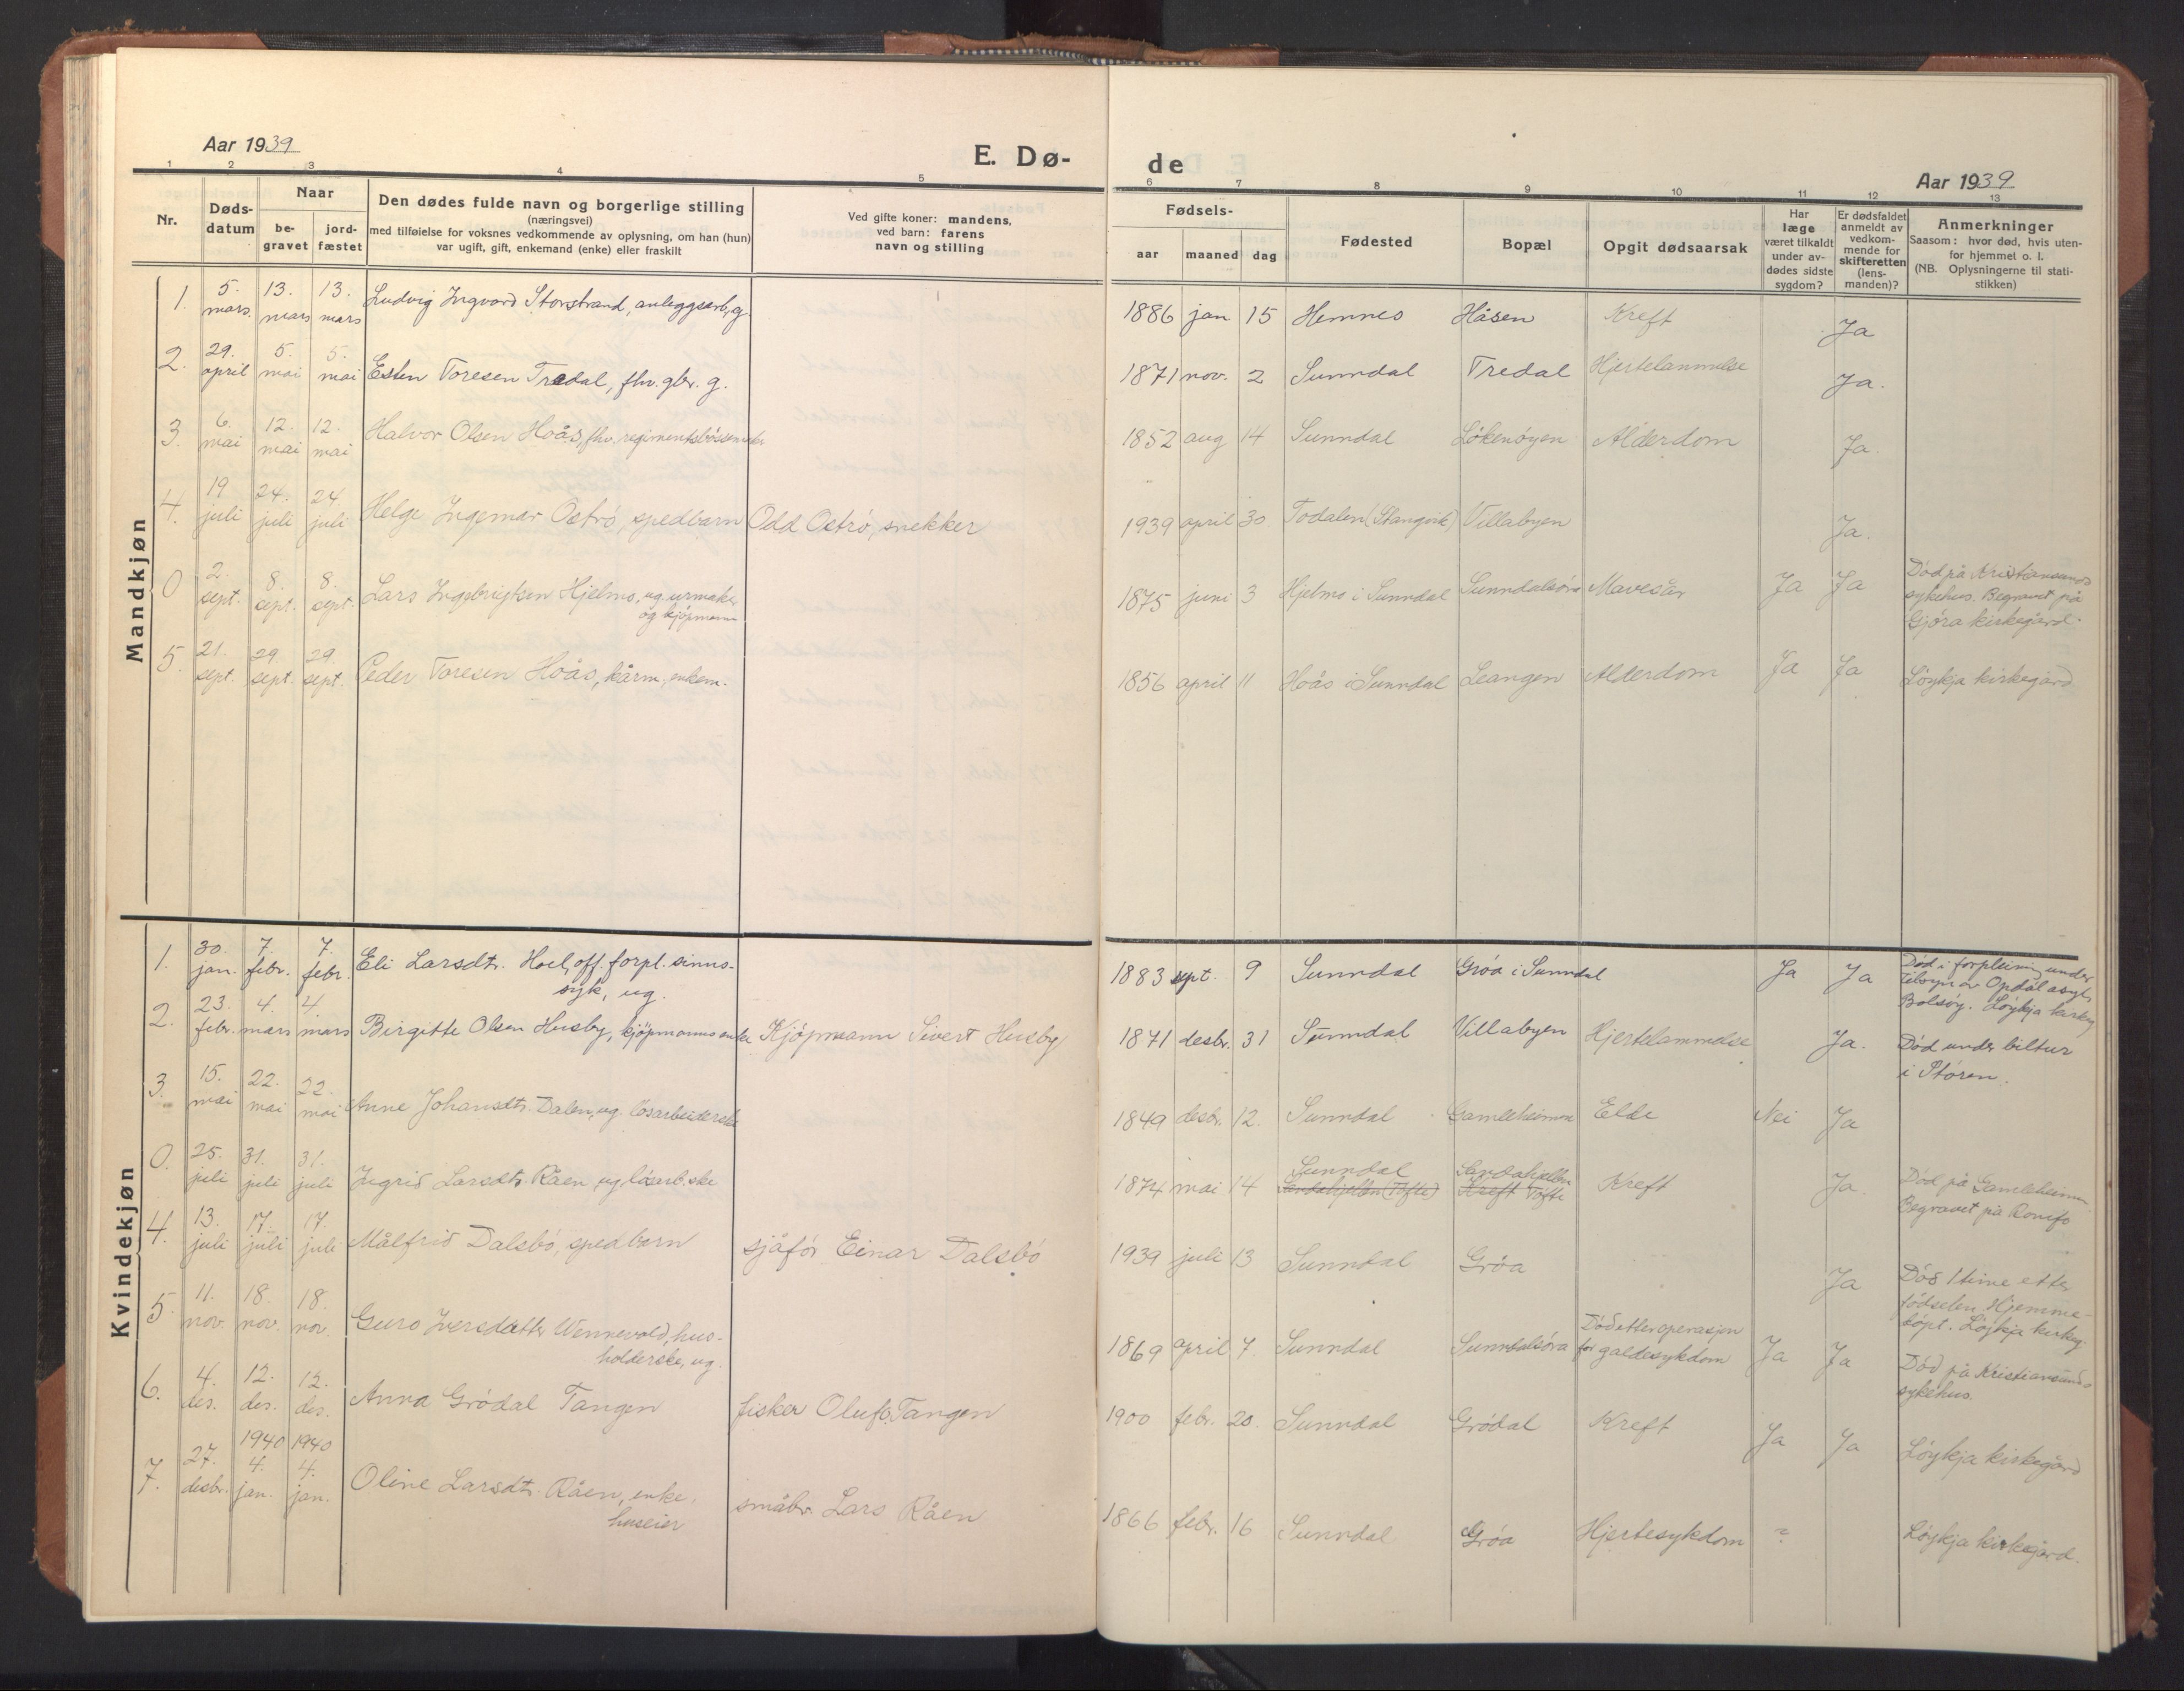 Aar 1939
E. Dø-
1 2 3 4 5
Nr.
Døds-
datum
Naar
be-
gravet
jord-
fæstet
Den dødes fulde navn og borgerlige stilling
(næringsvei)
med tilføielse for voksnes vedkommende av oplysning, om han (hun)
var ugift, gift, enkemand (enke) eller fraskilt
Ved gifte koner: mandens,
ved barn: farens
navn og stilling
de
Aar 1939
6 7 8 9 10 11 12 13
Fødsels-
aar maaned dag
Fødested
Bopæl
Opgit dødsaarsak
Har
læge
været tilkaldt
under av-
dødes sidste
sygdom?
Er dødsfaldet
anmeldt av
vedkom-
mende for
skifteretten
(lens-
manden)?
Anmerkninger
Saasom: hvor død, hvis uten-
for hjemmet o. l.
(NB. Oplysningerne til stati-
stikken)
Mandkjøn
1. 5. mars. 13. mars 13. mars Ludvig Ingvard Storstrand, anleggsarb, g. 1886 jan. 15 Hemnes Håsen Kreft Ja
2. 29. april 5. mai 5. mai Esten Toresen Tredal, fhv. gbr. g. 1871 nov. 2 Sunndal Tredal Hjertelammelse Ja.
3. 6. mai 12. mai 12. mai Halvor Olsen Hoås, fhv. regimentsbøssemaker 1852 aug 14 Sunndal Løkenøyen Alderdom Ja.
4. 19 juli 24. juli 24 juli Helge Ingemar Ostrø, spedbarn Odd Ostrø, snekker 1939 april 30. Todalen (Stangvik) Villabyen Ja.
0 2. sept. 8. sept. 8. sept. Lars Ingebrigtsen Hjelmo, ug. urmaker
og kjøpmann 1875 juni 3 Hjelmo i Sunndal Sunndalsøra Mavesår Ja Ja Død på Kristiansunds
sykehus. Begravet på
Gjøra kirkegård.
5. 21. sept. 29. sept. 29. sept. Peder Toresen Hoås, kårm., enkem. 1856 april 11 Hoås i Sunndal Leangen Alderdom Ja Ja Løykja kirkegård
Kvindekjøn
1. 30. jan. 7. febr. 7. febr. Eli Larsdtr. Hoel, off. forpl. sinns-
syk, ug. 1883 sept. 9 Sunndal Grøa i Sunndal Ja Ja Død i forpleining under
tilsyn av Opdøl asyl,
Bolsøy. Løykja kirkeg
2. 23. febr. 4. mars 4. mars Birgitte Olsen Husby, kjøpmanns enke Kjøpmann Sivert Husby 1871 desbr. 31 Sunndal Villabyen Hjertelammelse Ja. Død under biltur
i Støren.
3. 15. mai 22. mai 22. mai Anne Johansdtr. Dalen, ug. løsarbeiderske 1849 desbr. 12. Sunndal Gamleheimen Elde Nei Ja
0. 25. juli 31. juli 31. juli Ingrid Larsdtr. Råen, ug. løsarb.ske 1874 mai 14 Sunndal
Sandahjellen (Tofte) Sandahjellen
Kreft Tofte Kreft Ja. Død på Gamleheimen
Begravet på Romfo
4. 13. juli 17. juli 17. juli Målfrid Dalsbø, spedbarn sjåfør Einar Dalsbø 1939 juli 13 Sunndal Grøa Ja Død 1 time etter
fødselen. Hjemme-
døpt. Løykja kirkeg.
5. 11. nov. 18. nov. 18. nov. Guro Iversdatter Wennevold, hus-
holderske, ug. 1869 april 7. Sunndal Sunndalsøra Død etter operasjon
for galdesykdom Ja Ja Død på Kristiansunds
sykehus.
6. 4. des. 12. des. 12. des. Anna Grødal Tangen fisker Oluf Tangen 1900 febr. 20. Sunndal Grødal Kreft Ja Ja Løykja kirkegård
7. 27. desbr. 1940 4. jan. 1940 4. jan. Oline Larsdtr. Råen, enke,
huseier småbr. Lars Råen 1866 febr. 16 Sunndal Grøa Hjertesykdom ? Løykja kirkegård.